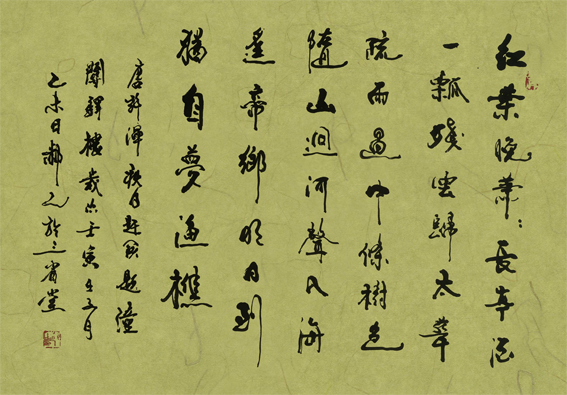 紅葉晚蕭〻長亭酒
一瓢殘雲歸太華
疏雨過中條樹色
隨山迥河聲入海
遙帝鄉明日到
猶自夢漁樵
唐許渾秋日赴闕題潼
關驛樓歲次壬寅年五月
乙未日郝於三省堂